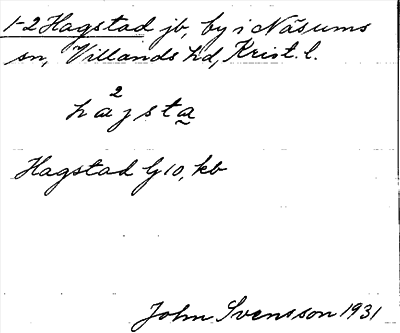 1-2 Hagstad jb, by i Näsums
sn, Villands hd, Krist. l.
ha²gsta
Hagstad G 10, kb
John Svensson 1931